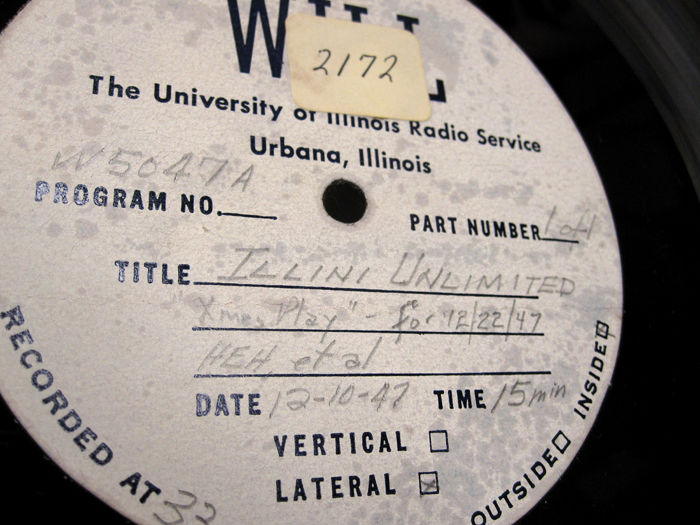 WILL
2172
The University of Illinois Radio Service
Urbana, Illinois
W5047A
PROGRAM NO.
PART NUMBER 1 of 1
TITLE ILLINI UNLIMITED
"Xmas Play" - for 12/22/47
HEH, et al
DATE 12-10-47 TIME 15 min
VERTICAL
LATERAL
RECORDED AT 33
OUTSIDE INSIDE